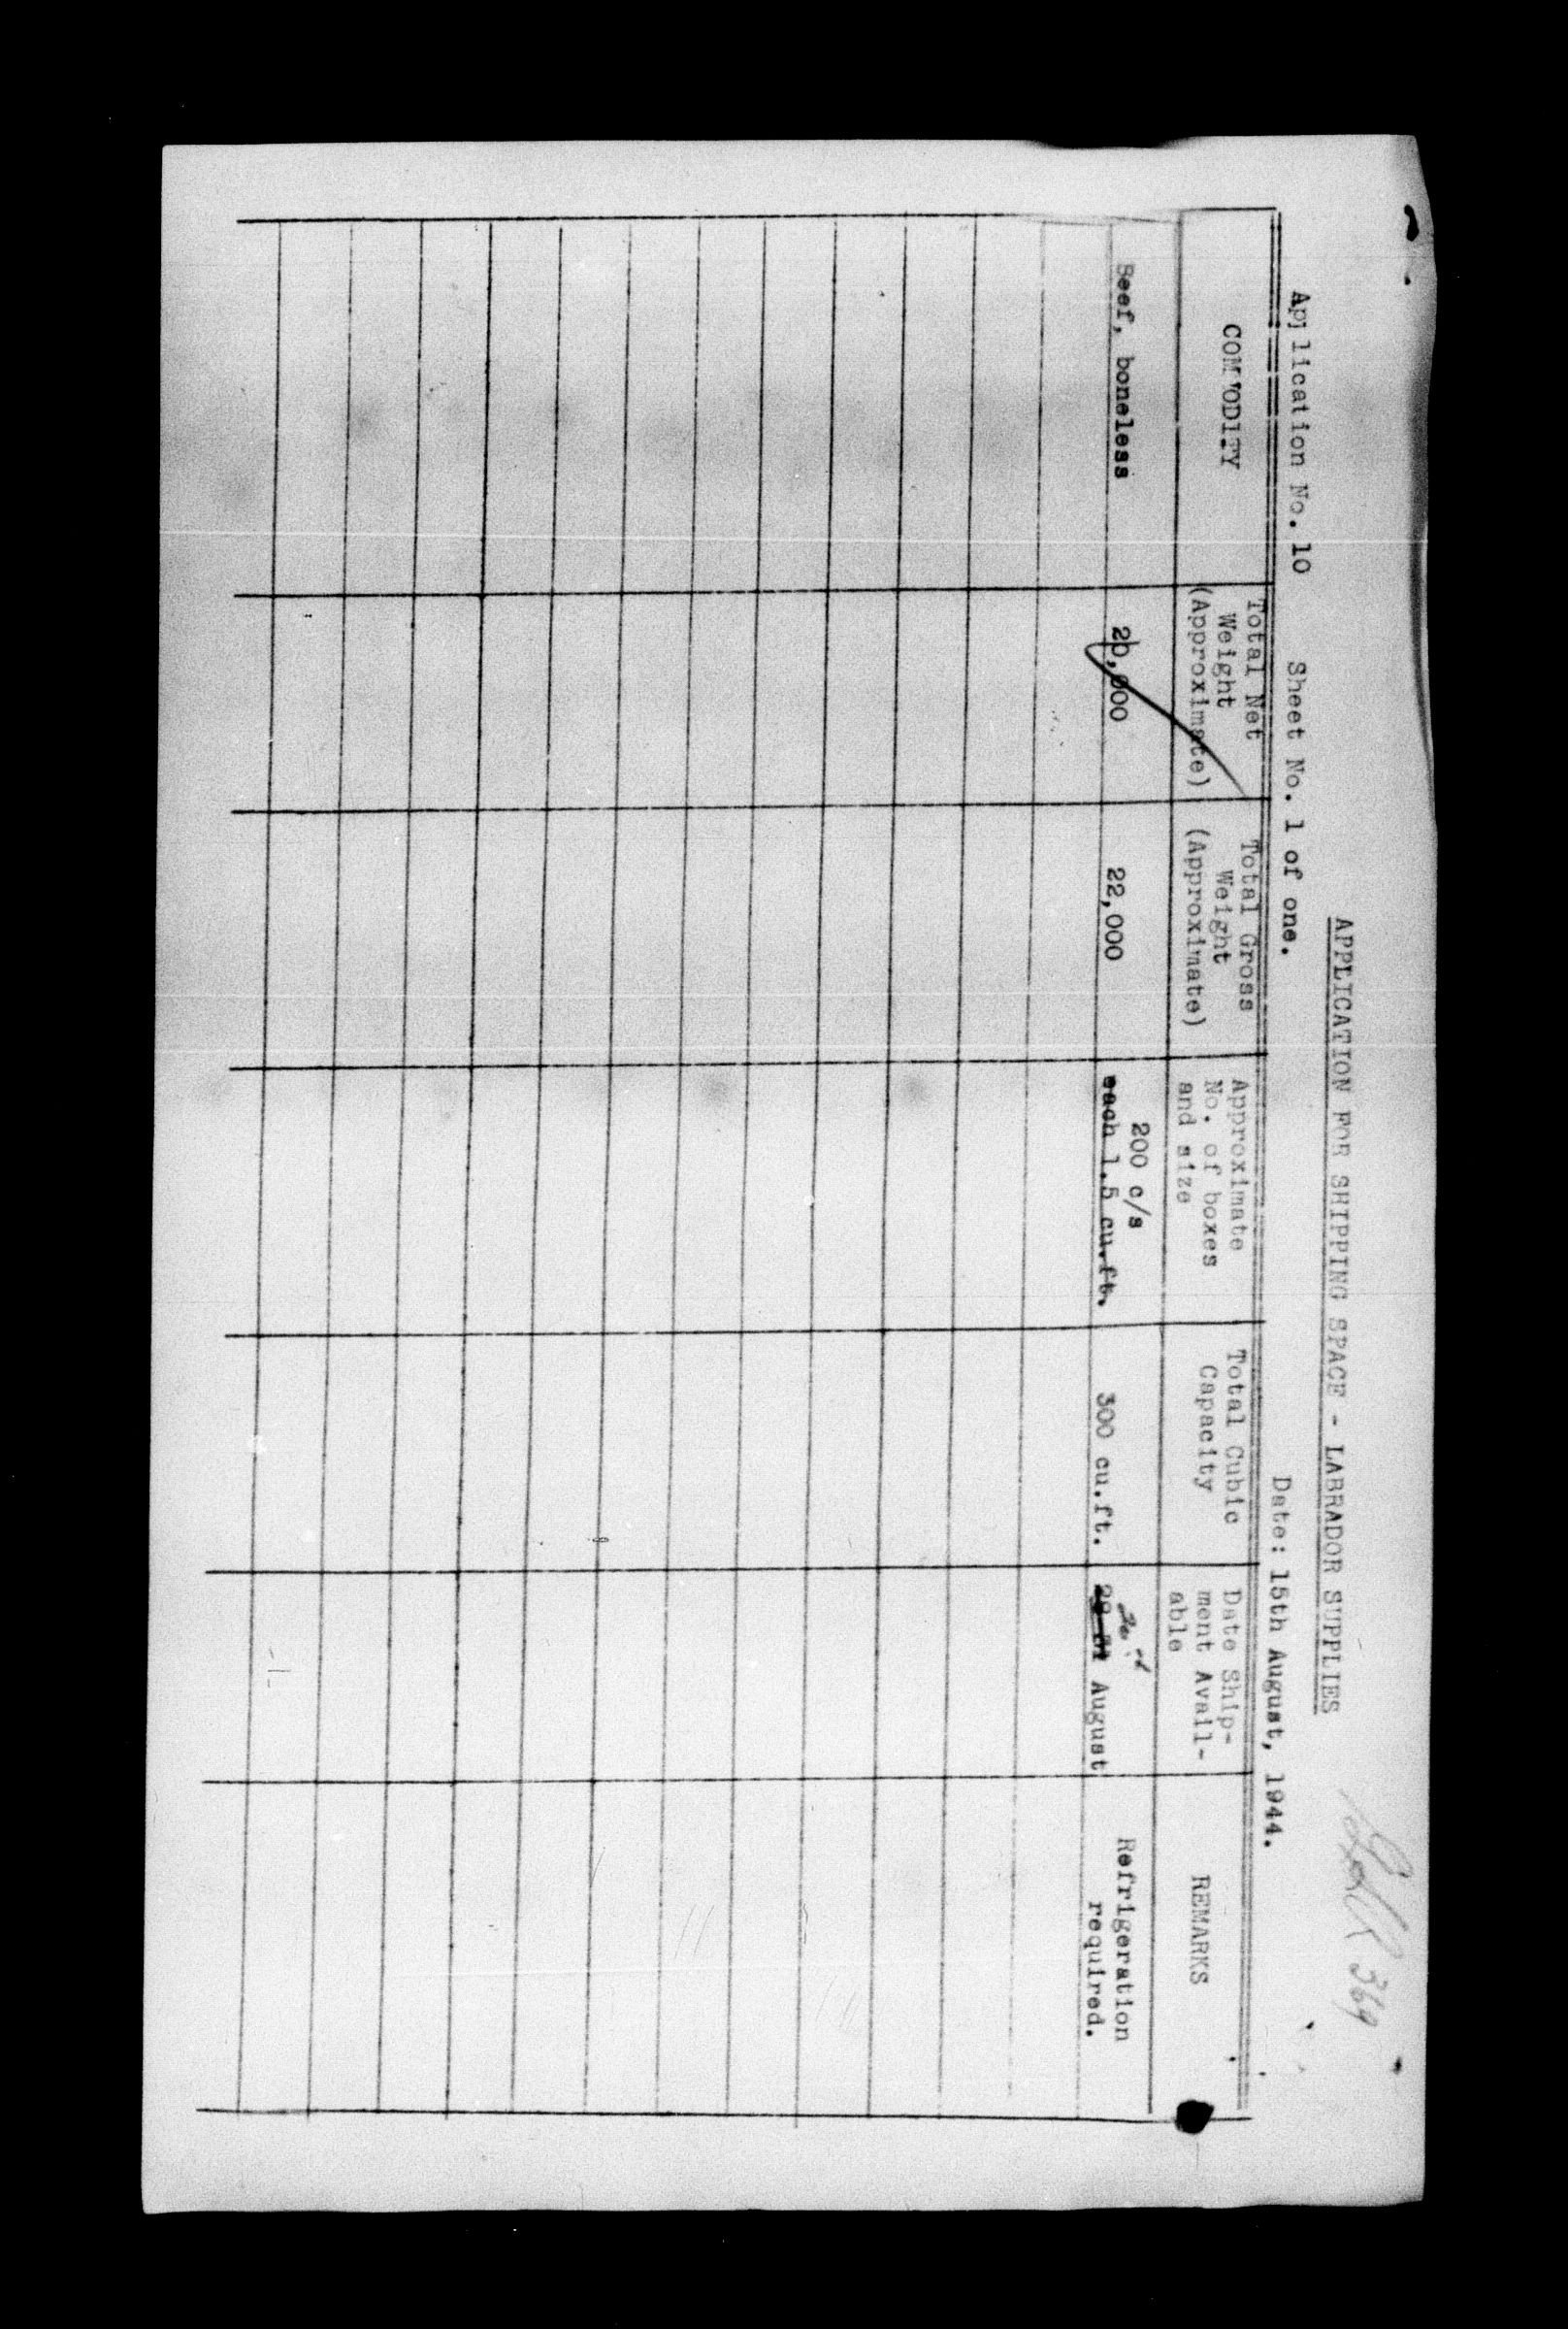 APPLICATION FOR SHIPPING SPACE - LABRADOR SUPPLIES
Application No. 10 Sheet No. 1 of one. Date: 15th August, 1944.
COMMODITY
Total Net
Weight
(Approximate)
Total Gross
Weight
(Approximate)
Approximate
No. of boxes
and size
Total Cubic
Capacity
Date Ship-
ment Avail-
able
REMARKS
Beef, boneless
20,000
22,000
200 c/s
each 1.5 cu.ft.
300 cu.ft.
August
Refrigeration
required.
369